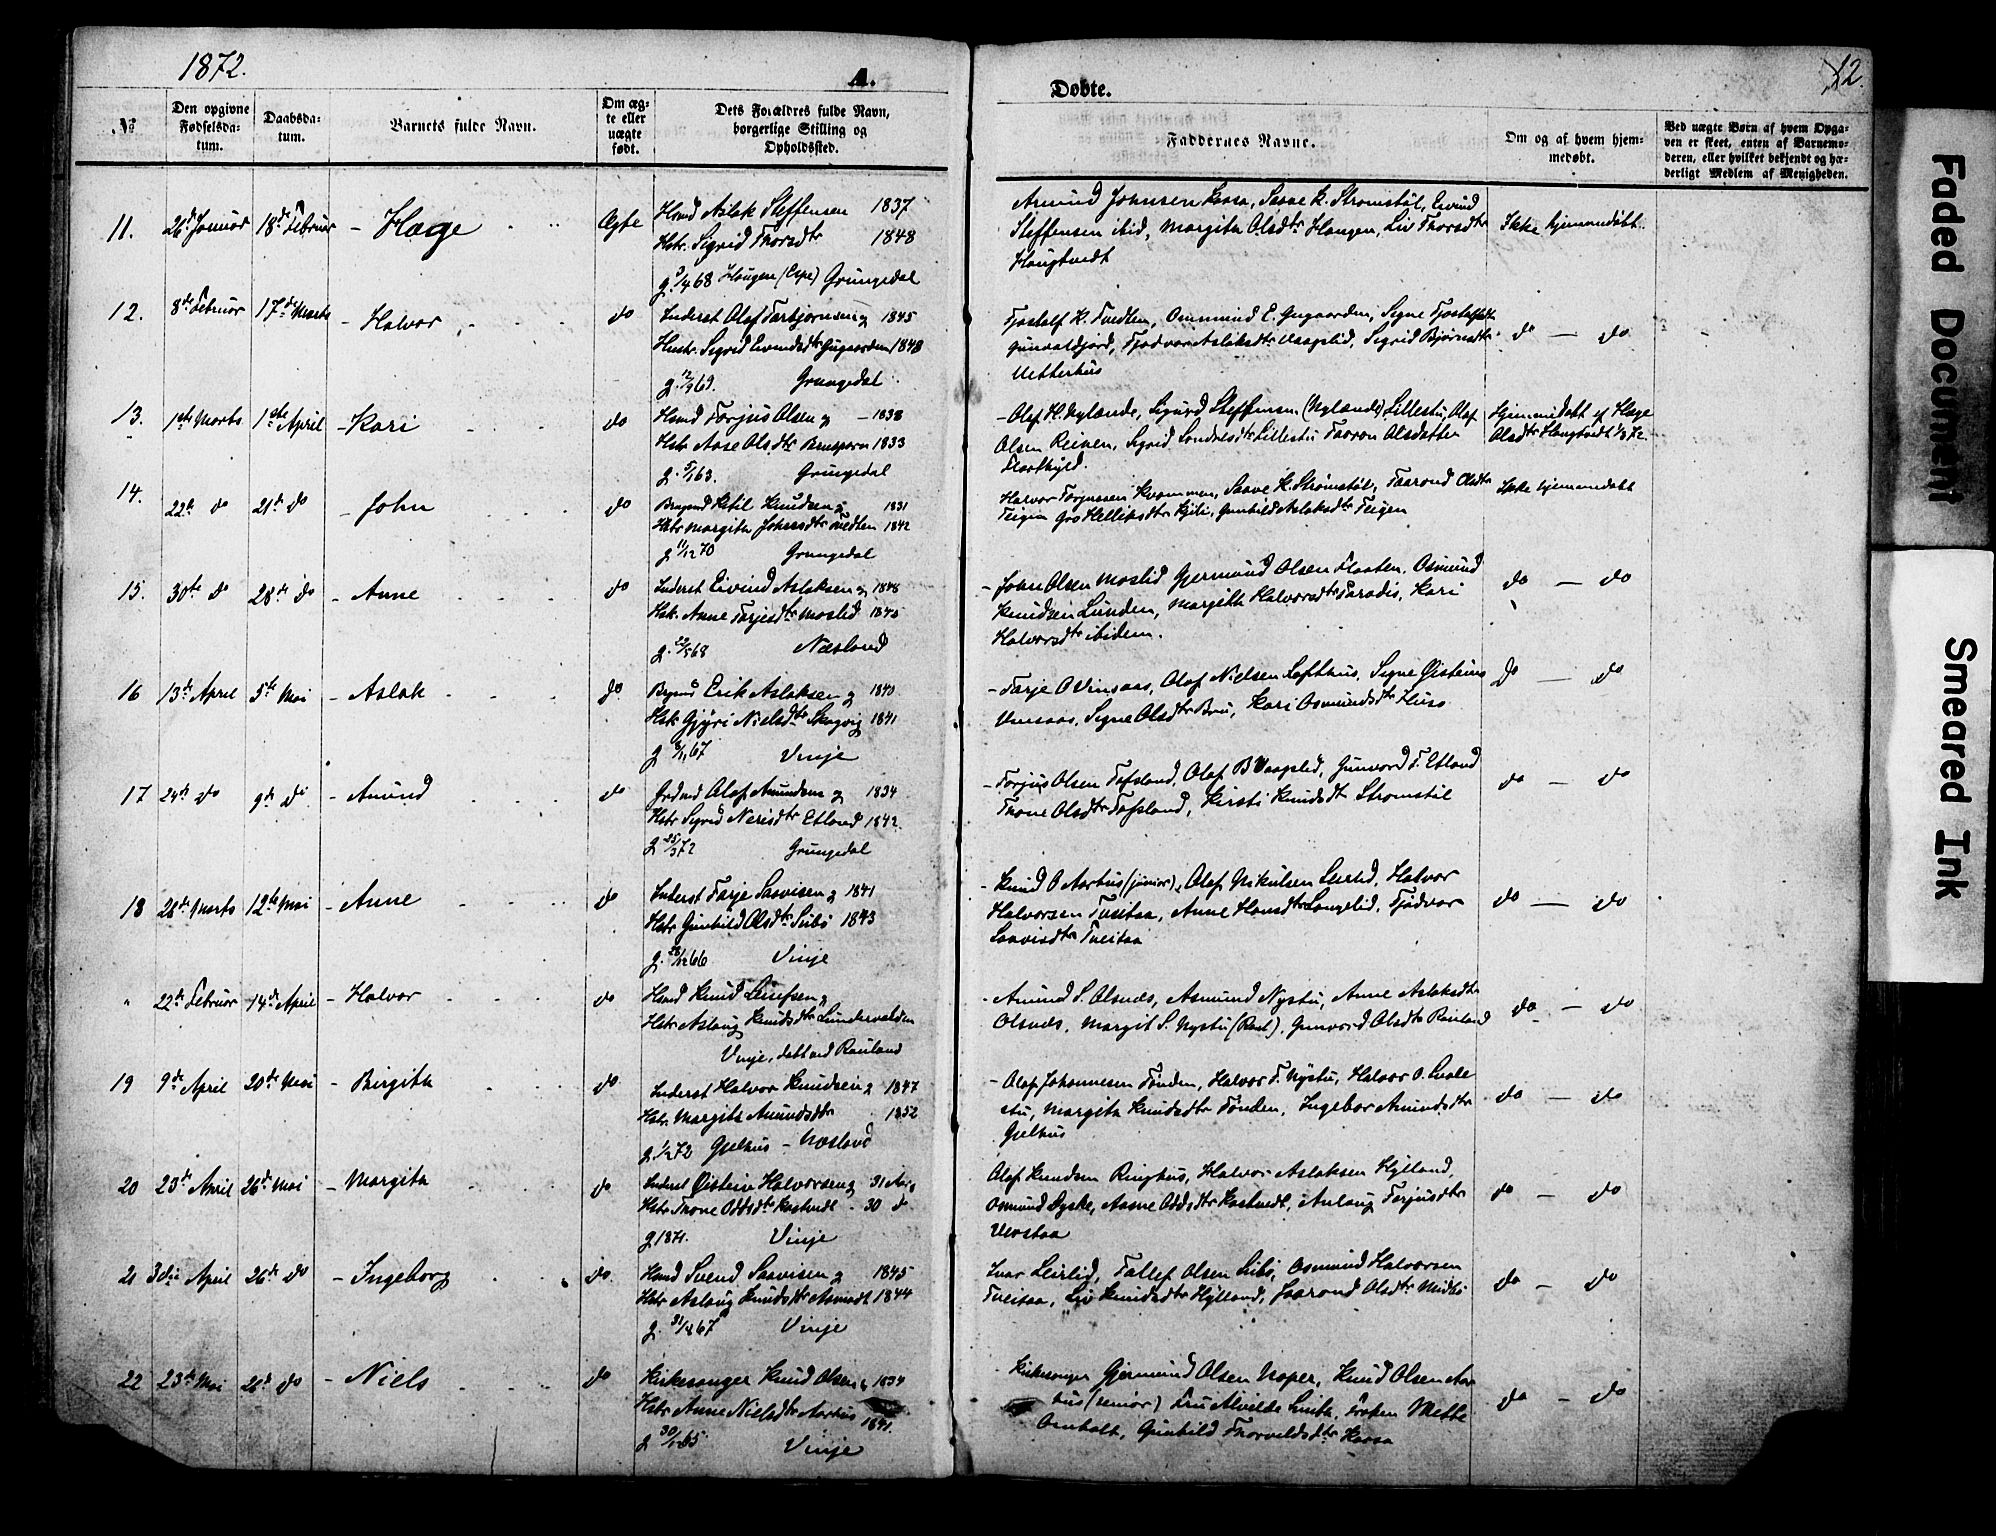 1872.
A.
Døbte.
12.
№
Den opgivne Fødselsda-tum.
Daabsda-tum.
Barnets fulde Navn.
Om æg-te eller uægte født.
Dets Forældres fulde Navn, borgerlige Stilling og Opholdssted.
Faddernes Navne.
Om og af hvem hjem-medøbt.
Ved uægte Børn af hvem Opga-ven er skeet, enten af Barnemo-deren, eller hvilket bekjendt og hæ-derligt Medlem af Menigheden.
11. 26de Januar 18de Februar - Hæge Ægte
Hsmd Aslak Steffensen 1837
Hstr. Sigrid Thorsdtr 1848
g. 3/4 68 Haugen (Espe) Grungedal
Asmund Johnsen Kossa, Saave K. Strømstøl, Eivind
Steffensen ibid, Margith Olsdtr Haugen, Liv Thorsdtr
Haugtvedt
Ikke hjemmedøbt.
12. 8de Februar 17de Marts - Halvor do
Inderst Olaf Torbjørnsen og 1845
Hustr. Sigrid Eivindsdtr Gugaarden 1848
g. 12/9 69. Grungedal
Tjostolf K. Tvedten, Ommund E. Gugaarden, Signe Tjostolfsdtr
Gunvaldjord, Tjodvor Aslaksdtr Vaagslid, Sigrid Bjørnsdtr
Utterhus
do — do
13. 1ste Marts 1ste April - Kari do
Hsmd Torjus Olsen og - 1838
Hstr Aase Olsdtr Brusporn 1833
g. 5/1 63. Grungedal
- Olaf H. Nylænde, Sigurd Steffensen (Nylænde) Lillestu, Olaf
Olsen Reinen, Sigrid Sondresdtr Lillestu Taaron Olsdatter
Flaathyld.
Hjemmedøbt af Hæge
Olsdtr Haugtvedt 1/3 72.
14. 22de do 21de do - John do
Brugmd Ketil Knudsen og 1831
Hstr Margith Johnsdtr Tvedten 1842
g 11/12 70 Grungedal
Halvor Torjussen Kvammen, Saave K. Strømstøl, Taarond Olsdtr
Teigen Gro Helliksdtr Kjili, Gunhild Aslaksdtr Teigen
Ikke hjemmedøbt
15. 30te do 28de do - Anne do
Inderst Eivind Aslaksen og 1848
Hstr. Anne Tarjesdtr Moslid 1845
g. 22/5 68 Næsland
- John Olsen Moslid Gjermund Olsen Flaaten, Osmund
Knudsen Lunden, Margith Halvorsdtr Paradis, Kari
Halvorsdtr ibidem.
do — do
16 13de April 5te Mai - Aslak do
Brgmd Erik Aslaksen og 1840
Hstr Gjyri Nielsdtr Skogvig 1841
g 67 Vinje
- Tarje O Vinsaas, Olaf Nielsen Lofthus, Signe Øisteins
Vinsaas, Signe Olsdtr Bru, Kari Osmundsdtr Huso
do — do
17 24de do 9de do - Amund do
Grdmd Olaf Amundsen og 1834
Hstr Sigrid Nerisdtr Etland 1842.
g 25/3 72 Grungedal
- Torjus Olsen Tofsland, Olaf B Vaagslid, Gunvord T. Etland
Thone Olsdtr Tofsland, Kirsti Knudsdt Strømstøl
do — do
18 28de Marts 12te Mai - Anne do
Inderst Tarje Saavisen og 1841
Hstr Gunhild Olsdtr Subø 1843
g. 26/12 66 Vinje
- Knud O Aarhus (junior), Olaf Nikulsen Leirlid, Halvor
Halvorsen Tveitaa, Anne Hansdtr Langelid, Tjodvor
Saavisdtr Tveitaa
do — do
" 22de Februar 14de April - Halvor do
Hsmd Knud Leufsen og
Hstr Aslaug Knudsdtr Lundevalden
Vinje, døbt ved Rauland
- Amund S. Olsnes, Asmund Nystu, Anne Aslaksdtr
Olsnes, Margit S. Nystu (Raul), Gunvord Olsdtr Rauland
do — do
19 9de April 20de Mai - Birgith do
Inderst Halvor Knudsen og 1847
Hstr. Margith Amundsdtr 1852
g. 1/2 72 Gjelhus - Næsland
- Olaf Johannesen Tønden, Halvor T. Nystu, Halvor O. Lvale
stu, Margith Knudsdtr Tønden, Ingebor Amundsdtr
Gjelhus
do — do
20 23de April 26de Mai - Margith do
Inderst Øistein Halvorsen og 31 Aar
Hstr Thone Oddsdtr Kostvedt - 30 d
g 1871. Vinje
Olaf Knudsen Ringhus, Halvor Aslaksen Hylland,
Osmund Dyske, Aasne Oddsdtr Kostvedt, Aslaug Torjusdtr
Verstaa
do — do
21 3die April 26de do - Ingeborg do
Hsmd Svend Saavisen og 1845
Hstr Aslaug Knudsdtr Asmodt 1844
g. 67 Vinje
Ivar Leirlid, Tallef Olsen Subø, Osmund Halvorsen
Tveitaa, Liv Knudsdtr Hylland, Taarond Olsdtr Midbø
do — do
22 23de Mai 26de do - Niels do
Kirkesanger Knud Olsen og 1834
Hstr Anne Nielsdtr Aarhus 1841.
g 30/12 65 Vinje
Kirkesanger Gjermund Olsen Naper, Knud Olsen Aar
hus (senior) Fru Alvilde Smith, Frøken Mette
Omholt, Gunhild Thorvaldsdtr Kossa
do — do
Faded Document
Smeared Ink